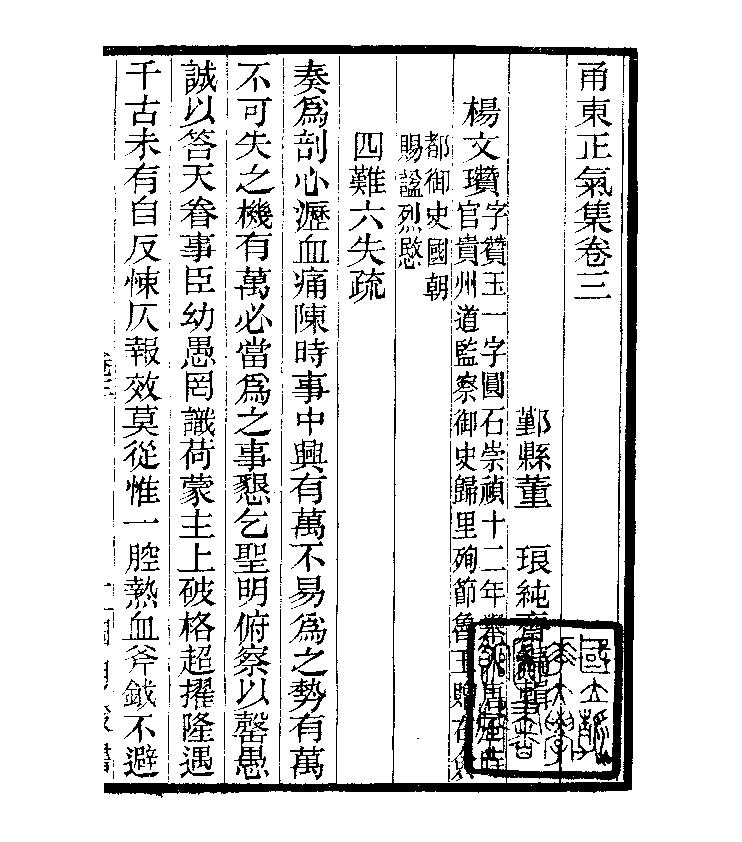 甬東正氣集卷三
鄞縣董 琅純齋
楊文瓚字纘玉一字圓石崇禎十二年
官貴州道監察御史歸里殉節魯王贈右僉
都御史國朝
賜諡烈愍
四難六失疏
奏爲剖心瀝血痛陳時事中興有萬不易爲之勢有萬
不可失之機有萬必當爲之事懇乞聖明俯察以罄愚
誠以答天眷事臣幼愚罔識荷蒙主上破格超擢隆遇
千古未有自反悚仄報效莫從惟一腔熱血斧鉞不避